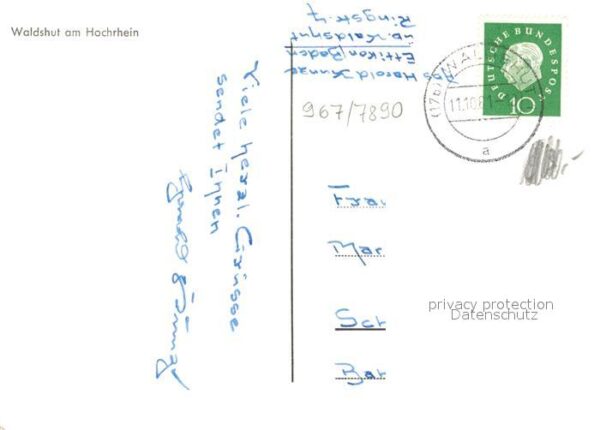 Waldshut am Hochrhein
Viele herzl. Grüsse
sendet Ihnen
Abs Harold Kunze
Ettikon/Baden
üb. Waldshut
Ringstr. 7
967/7890
DEUTSCHE BUNDESPOST
10
(17b) WAL
11.10.61
a
Frau
Mar
Sch
Bar
privacy protection
Datenschutz